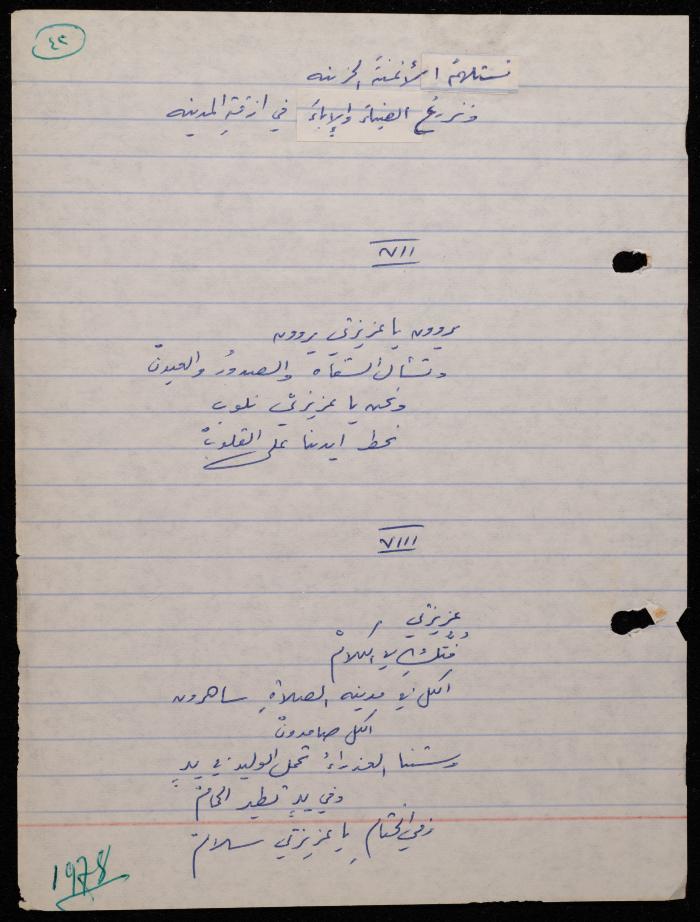 ٤٢
نستلهمُ الأغنيةَ الحزينه
ونزرعُ الضياءَ والإباءَ في ازقةِ المدينه
VII
يروون يا عزيزتي يروون
وتسأل الشفاه والصدورُ والعيونْ
ونحن يا عزيزتي نلوب
نحط ايدينا على القلوبْ
VIII
عزيزتي
الكلامْ
الكل في مدينه الصلاةِ ساهرون
الكل صامدونْ
وستنا العذراءُ تحمل الوليد في يدٍ
وفي يدٍ تطير الحمامْ
وفي الختامِ يا عزيزتي سلامْ
1978